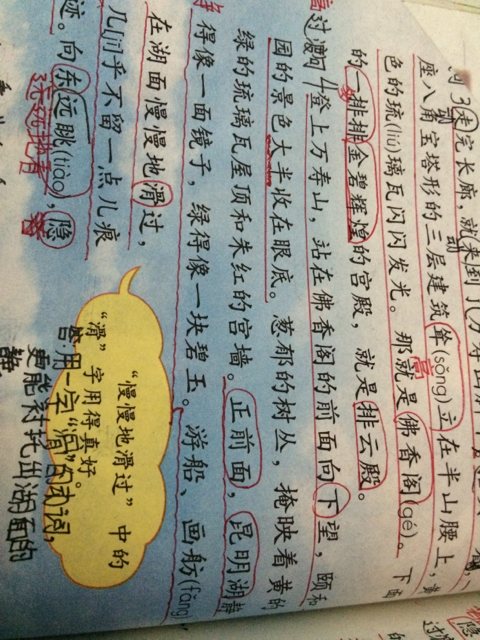 走完长廊,就来到了万寿山脚下
座八角宝塔形的三层建筑耸(sǒng)立在半山腰上,黄
色的琉(liú)璃瓦闪闪发光。那就是佛香阁(gé)。下面
的一排排金碧辉煌的宫殿,就是排云殿。
登上万寿山,站在佛香阁的前面向下望,颐和
园的景色大半收在眼底。葱郁的树丛,掩映着黄的
绿的琉璃瓦屋顶和朱红的宫墙。正前面,昆明湖静
得像一面镜子,绿得像一块碧玉。游船、画舫(fǎng)
在湖面慢慢地滑过,
几乎不留一点儿痕
迹。向东远眺(tiào),隐
"慢慢地滑过"中的
"滑"字用得真好
答用一字"滑"的动词,
更能衬托出湖面的
静